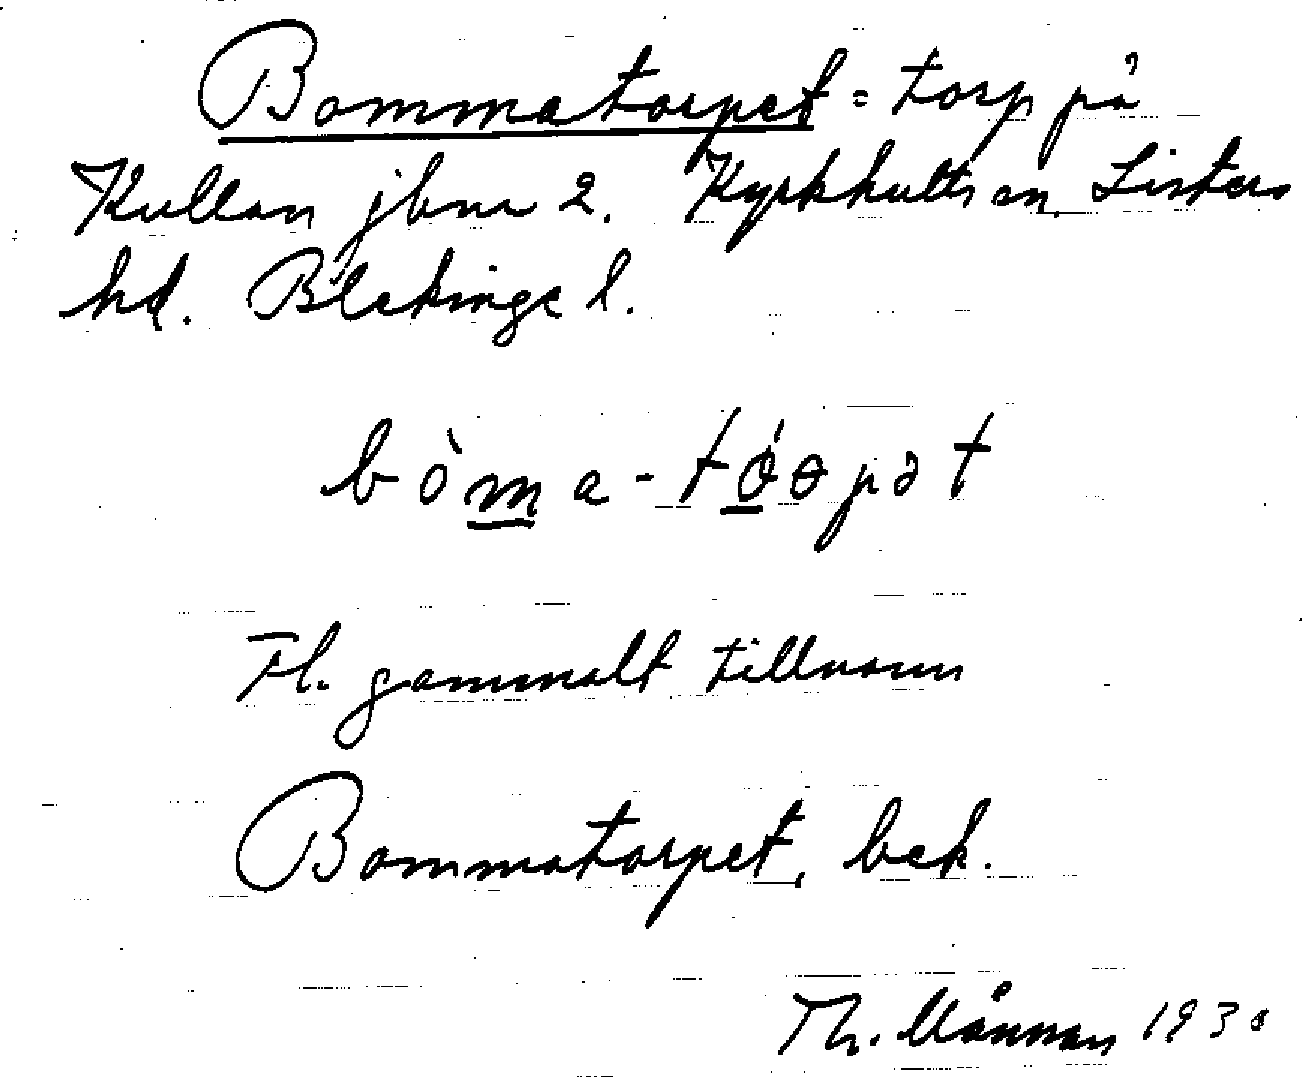 Bommatorpet = torp på
Kullan jbnr 2. Kyrkhults sn. Listers
hd. Blekinge l.
bòma-tóɵpət
Fl. gammalt tillnamn
Bommatorpet, bek.
Th. Månman 1930